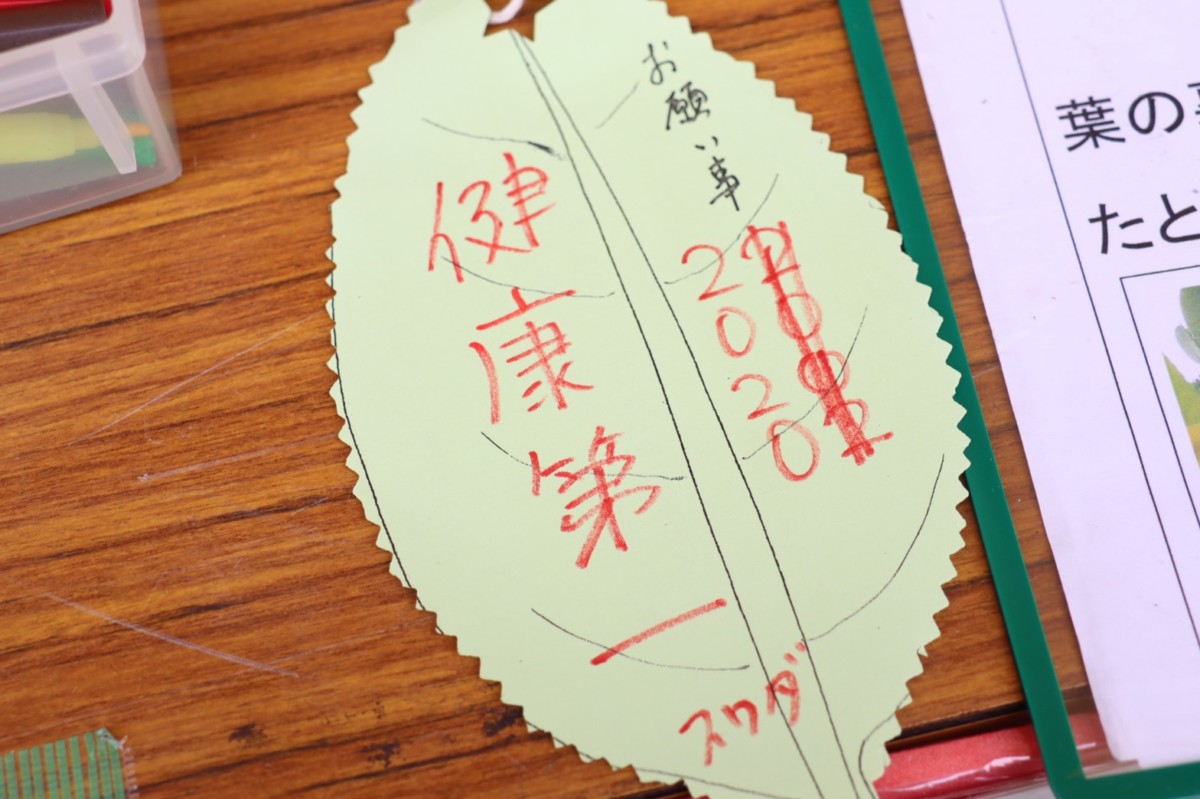 お願い事
2020
健康第一
スワダ
葉の
たど